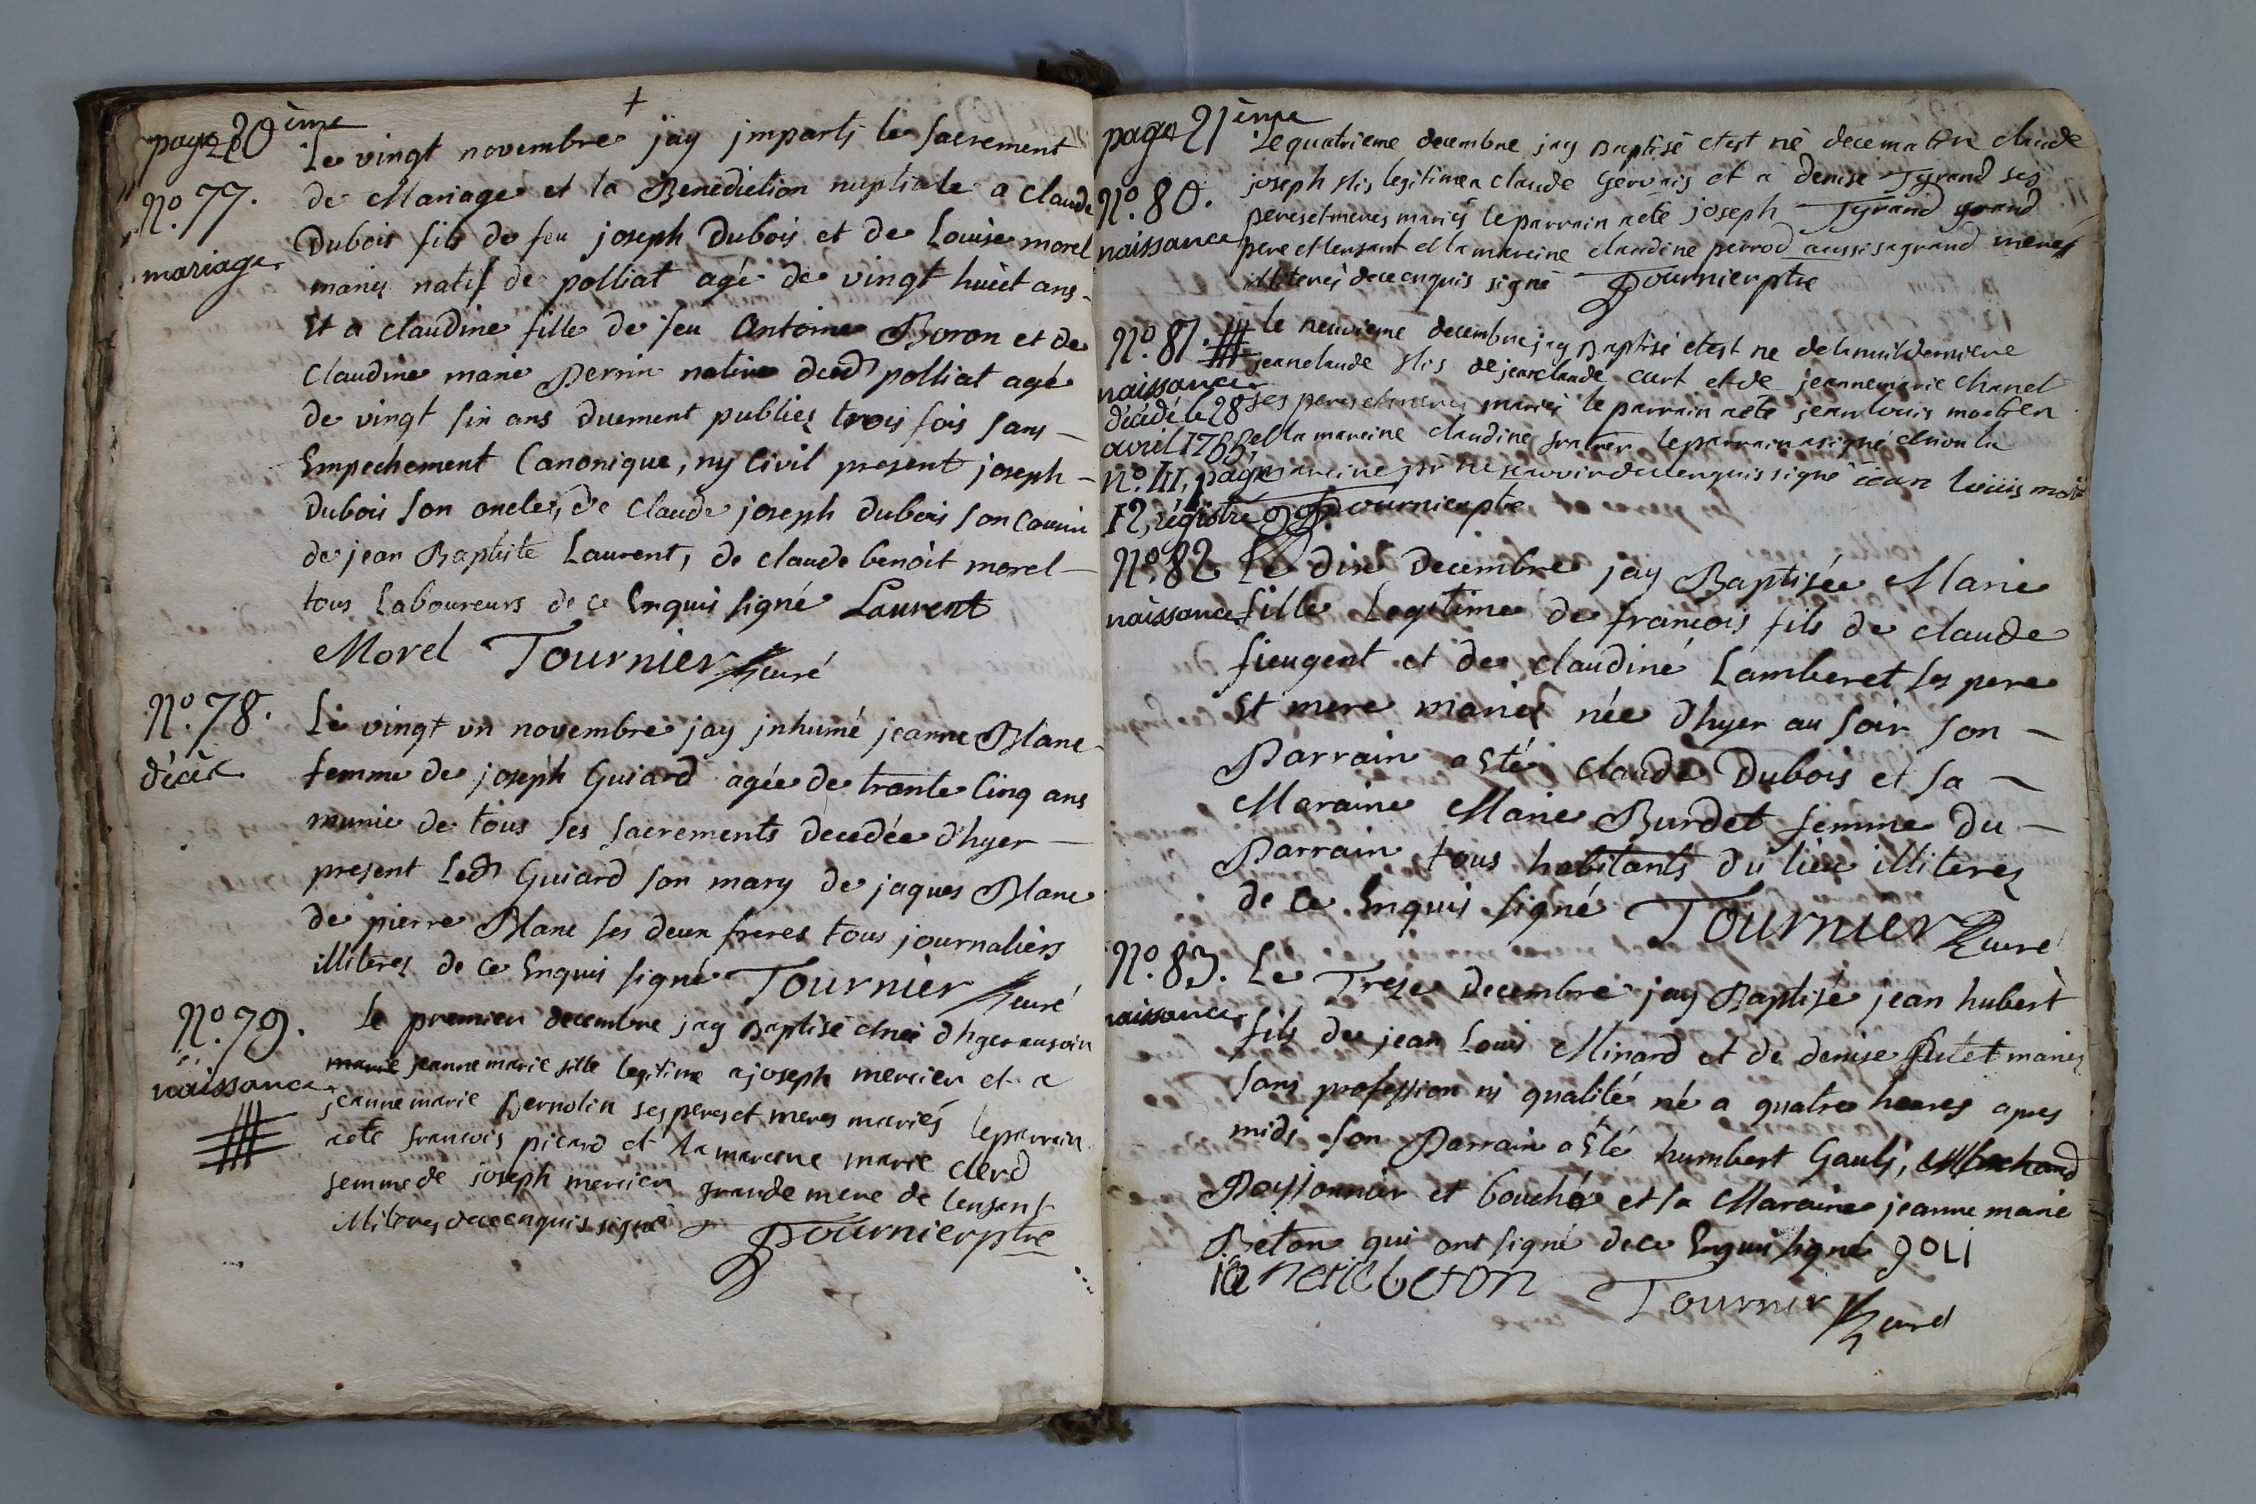 page 20ème
Le vingt novembre jay imparti le Sacrement
N.º 77.
de Mariage et la Benediction nuptiale a claude
mariage
Dubois fils de feu joseph Dubois et de Louise morel
mariés natif de polliat agé de vingt huict ans
Et a claudine fille de feu Antoine Boron et de
Claudine marie Perrin native dud polliat agé
de vingt six ans duement publiez trois fois sans
Empechement Canonique, ny Civil present joseph
Dubois son oncle, de Claude joseph Dubois son Cousin
de jean Baptiste Laurent, de claude benoit morel
tous Laboureurs de ce Enquis signé Laurent
Morel Tournier curé
N.º 78.
décès
Le vingt un novembre jay jnhumé jeanne Blanc
femme de joseph Guiard agée de trante Cinq ans
munie de tous ses sacrements decedée d'hyer
present led Guiard son mary de jaques Blanc
de pierre Blanc ses deux freres tous journaliers
illiterez de ce Enquis signé Tournier curé
N.º 79.
naissance
Le premier decembre jay Baptisé et née dhyer au soir
marie jeanne marie fille legitime a joseph mercier et a
jeanne marie Bernolin ses peres et meres mariés le parrain
aeté francois picard et la mareine marie Clerd
femme de joseph mercier grande mere de lenfant
illiteres dece enquis signé Tournier ptre
page 21ème
N.º 80.
naissance
Le quatrieme decembre jay Baptisé et est né de ce matin claude
joseph fils legitime a claude Gervais et a denise Tyrand ses
peres et meres mariés le parrain aeté joseph Tyrand grand
pere et lenfant et la mareine claudine perrod aussi sa grand mere
illiterés dece enquis signé Tournier ptre
N.º 81.
naissance
décédé le 28
avril 1788,
n.º 41, page
12, registre
le neuvieme decembre jay Baptisé et est né de la nuit derniere
jean claude fils de jean claude curt et de jeanne marie Chanel
ses peres et meres mariés le parrain aeté jean louis
et la mareine claudine le parrain a signé et non la
mareine pr ne scavoir dece enquis signé iean louiis
Tournier ptre
N.º 82
naissance
Le dix Decembre jay Baptisée Marie
fille Legitime de francois fils de claude
fieugent et de claudine Lamberet ses pere
Et mere mariés née d'hyer au soir son
Parrain a Eté claude Dubois et sa
Maraine Marie Burdet femme du
Parrain tous habitants du lieu illiterez
de ce Enquis signé Tournier curé
N.º 83.
naissance
Le Treze Decembre jay Baptisé jean hubert
fils de jean Louis Minard et de denise futet mariez
sans profession ni qualité né a quatre heures apres
midi son Parrain a Eté humbert Gauli, Marchand
Poissonnier et bouché et sa Maraine jeanne marie
Beton qui ont signé de ce Enquis signé goli
beton Tournier curé